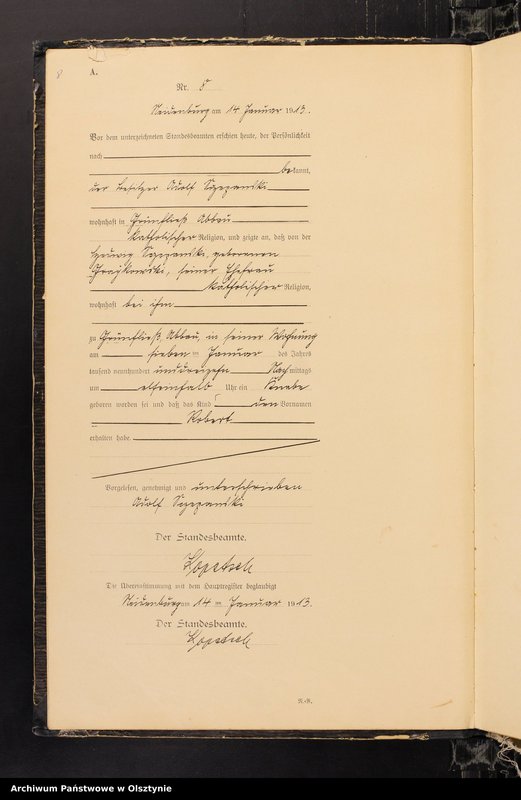 8
A.
Nr. 8
Neidenburg am 14 Januar 1913.
Vor dem unterzeichneten Standesbeamten erschien heute, der Persönlichkeit
nach
bekannt,
der Besitzer Adolf Szczepanski
wohnhaft in Grünfließ Abbau
katholischer Religion, und zeigte an, daß von der
Szczepanski, geborenen
seiner Ehefrau
katholischer Religion,
wohnhaft bei ihm
zu Grünfließ Abbau, in seiner Wohnung
am sieben ten Januar des Jahres
tausend neunhundert und dreizehn Nachmittags
um elfeinhalb Uhr ein Knabe
geboren worden sei und daß das Kind den Vornamen
Robert
erhalten habe.
Vorgelesen, genehmigt und unterschrieben
Adolf Szczepanski
Der Standesbeamte.
Kopetsch
Die Übereinstimmung mit dem Hauptregister beglaubigt
Neidenburg am 14 ten Januar 1913.
Der Standesbeamte.
Kopetsch
Archiwum Państwowe w Olsztynie